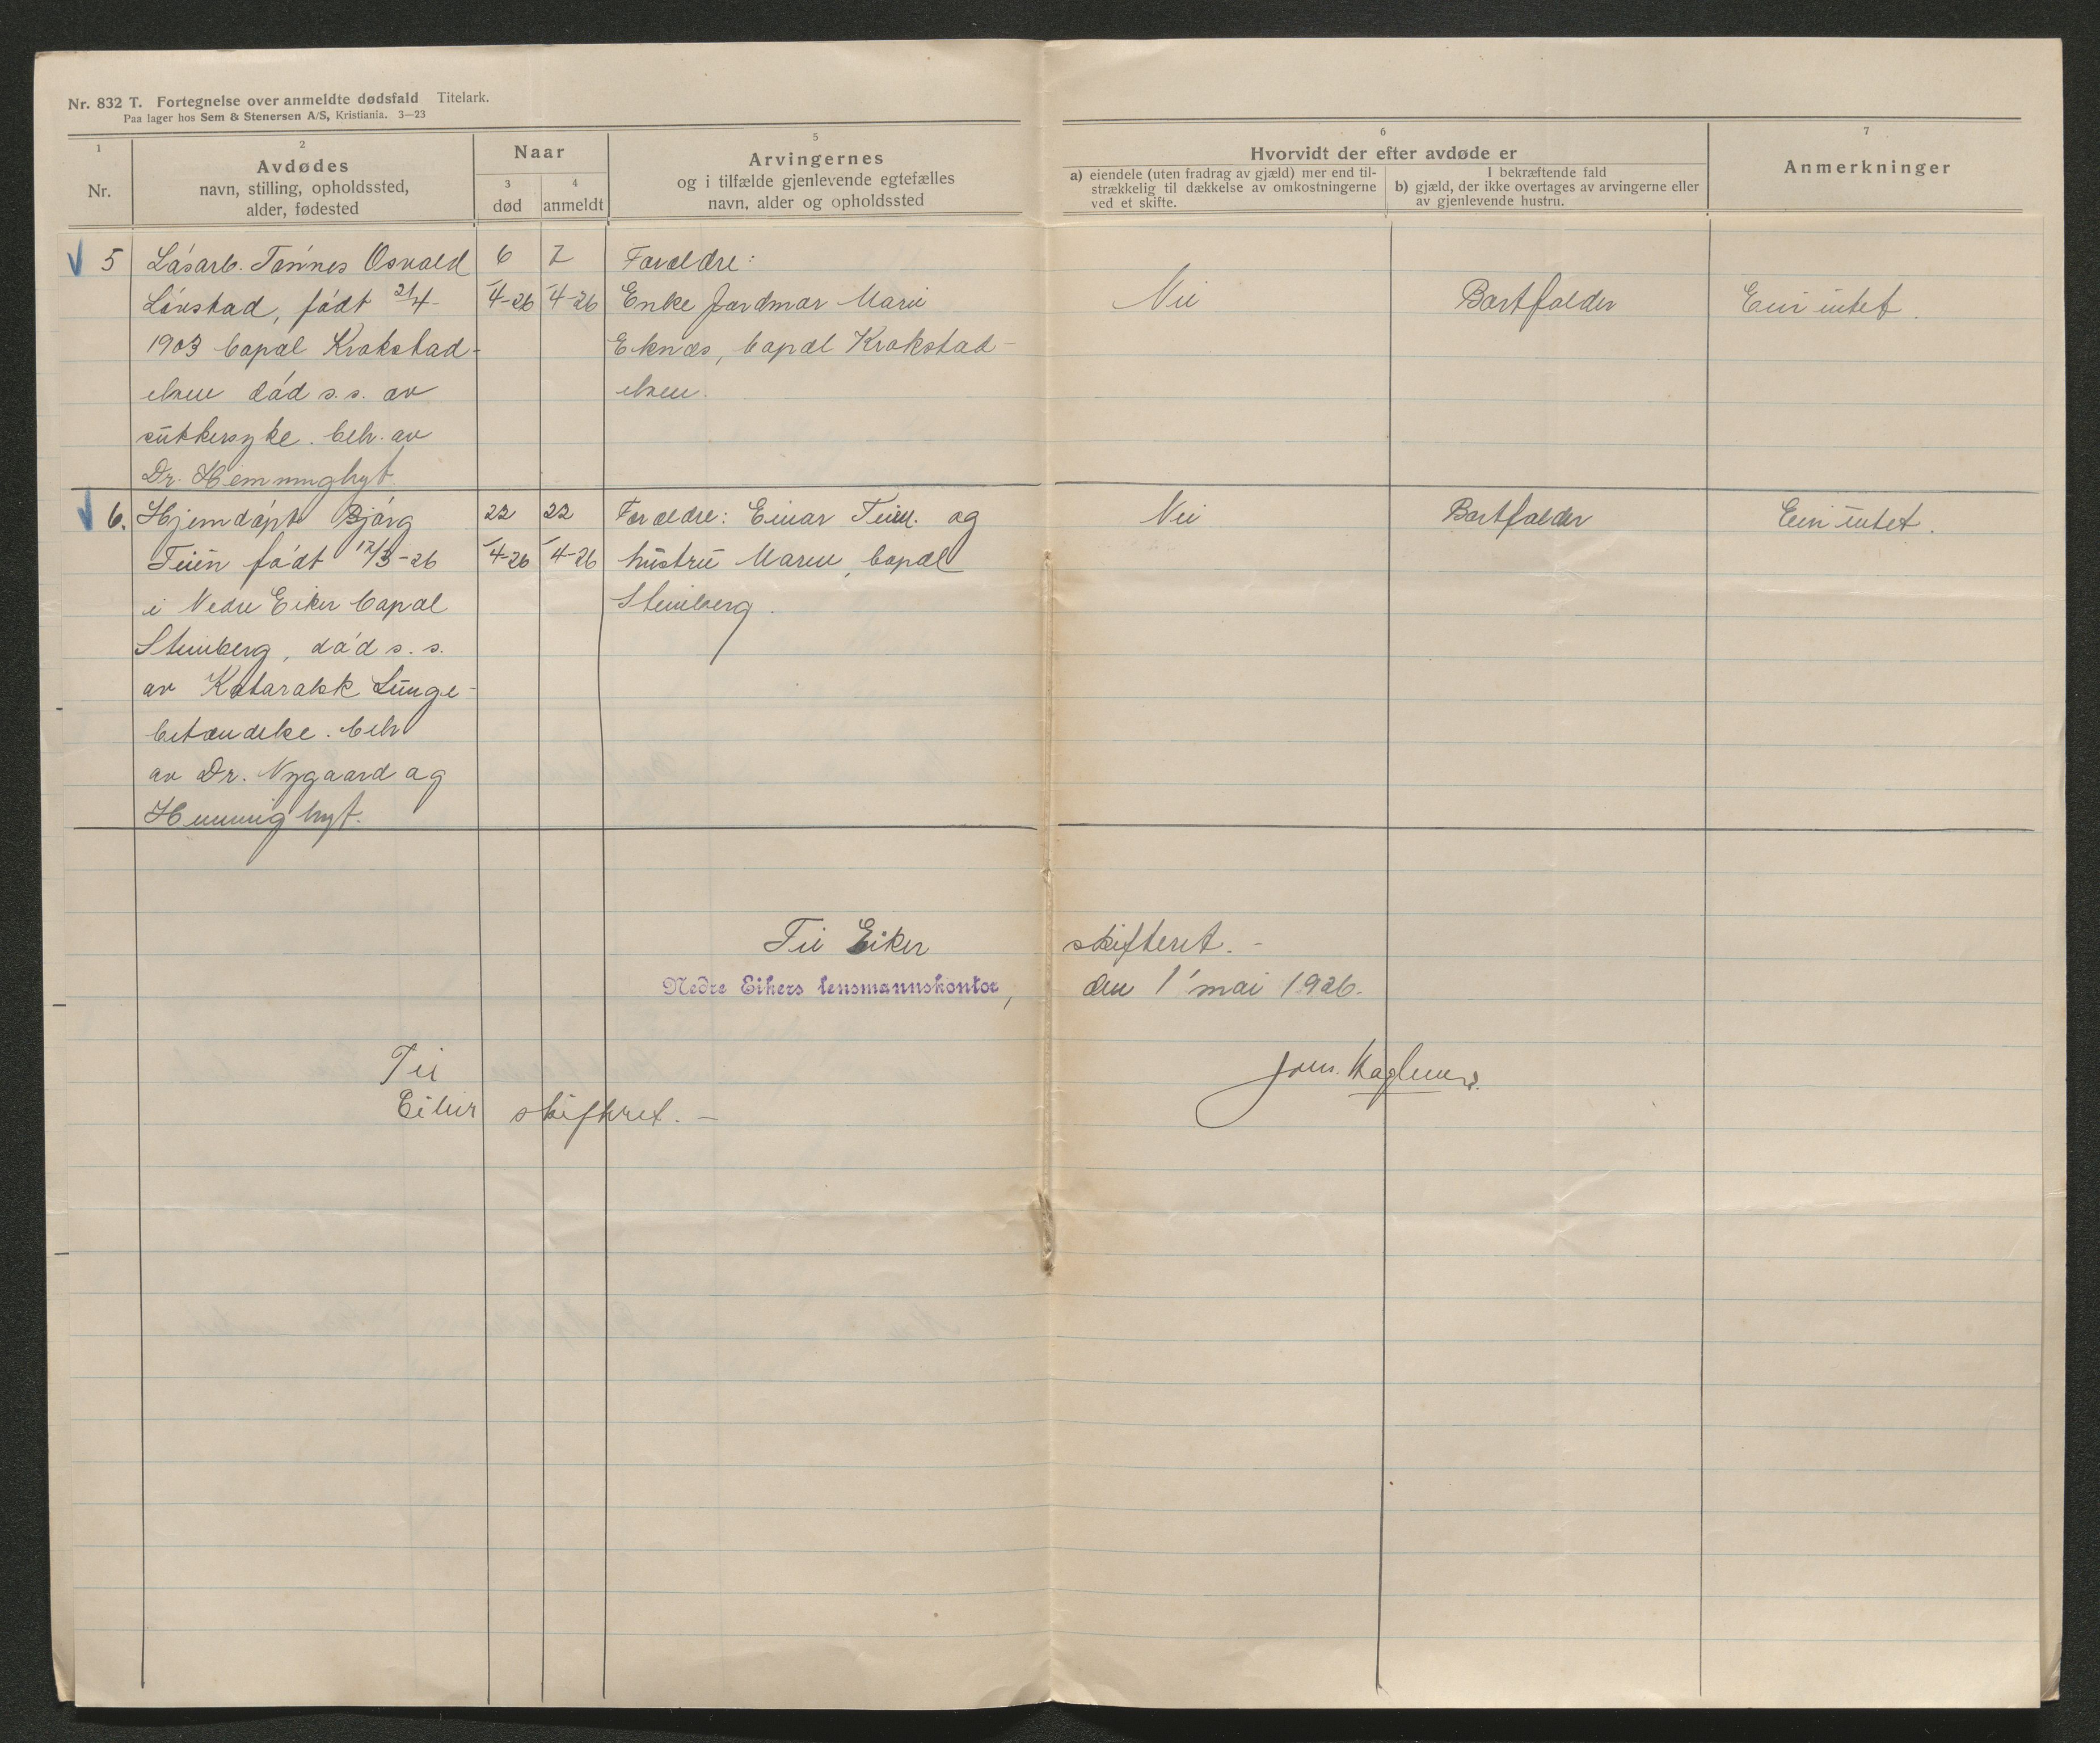 Nr. 832 T. Fortegnelse over anmeldte dødsfald Titelark.
Paa lager hos Sem & Stenersen A/S, Kristiania. 3—23
1
Nr.
2
Avdødes
navn, stilling, opholdssted,
alder, fødested
Naar
3
død
4
anmeldt
5
Arvingernes
og i tilfælde gjenlevende egtefælles
navn, alder og opholdssted
6
Hvorvidt der efter avdøde er
a) eiendele (uten fradrag av gjæld) mer end til-
strækkelig til dækkelse av omkostningerne
ved et skifte.
I bekræftende fald
b) gjæld, der ikke overtages av arvingerne eller
av gjenlevende hustru.
7
Anmerkninger
5
Løsarb. Tønnes Osvald
Lövstad, født 21/4-
1903 bopæl Krokstad-
elven død s. s. av
sukkersyke. beh. av
Dr. Hemminghyt.
6
4-26
7
4-26
Forældre:
Enke Jordmor Marie
Eknæs, bopæl Krokstad-
elven.
Nei
Bortfalder
Eier intet.
6.
Hjemdøpt Bjørg
Teien født 12/3-26
i Nedre Eiker bopæl
Steinberg, død s. s.
av Kataralsk Lunge-
betændelse. beh
av Dr. Nygaard og
Hemminghyt.
22
4-26
22
4-26
Forældre: Einar Teien og
hustru Maren, bopæl
Steinberg.
Nei
Bortfalder
Eier intet.
Til Eiker skifteret.-
Nedre Eikers lensmannskontor, den 1' mai 1926.
Til
Eiker skifteret.-